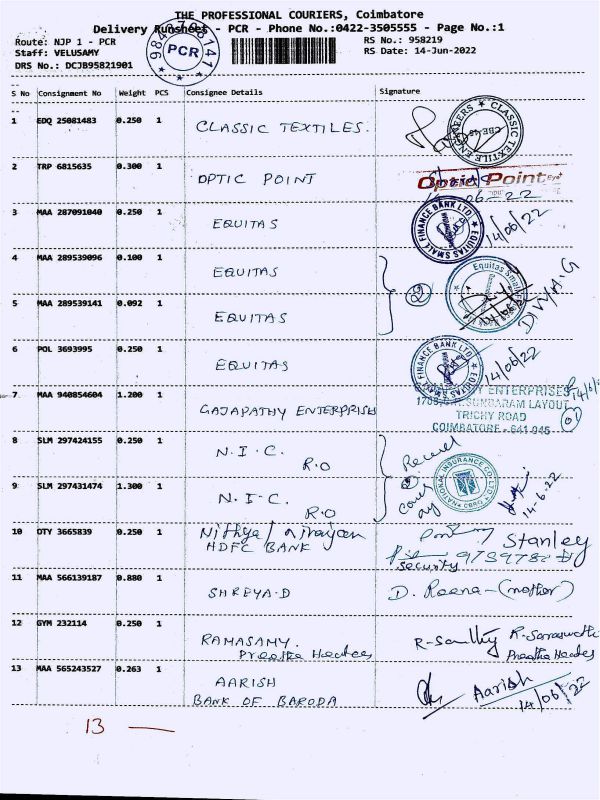 THE PROFESSIONAL COURIERS, Coimbatore
Delivery Runsheet - PCR - Phone No.:0422-3505555 - Page No.:1
Route: NJP 1 - PCR
Staff: VELUSAMY
DRS No.: DCJB95821901
PCR
RS No.: 958219
RS Date: 14-Jun-2022
S No Consignment No Weight PCS Consignee Details Signature
1 EDQ 25081483 0.250 1 CLASSIC TEXTILES.
CLASSIC TEXTILE ENGINEERS CBE-45
2 TRP 6815635 0.300 1 OPTIC POINT
Optic Point Eye+
3 MAA 287091040 0.250 1 EQUITAS
EQUITAS SMALL FINANCE BANK LTD 14/06/22
4 MAA 289539096 0.100 1 EQUITAS
2 Equitas Small
5 MAA 289539141 0.092 1 EQUITAS
DIVYA.G
6 POL 3693995 0.250 1 EQUITAS
EQUITAS SMALL FINANCE BANK LTD 14/06/22
7 MAA 940854604 1.200 1 GAJAPATHY ENTERPRISE
ENTERPRISES
SUNDARAM LAYOUT
TRICHY ROAD
COIMBATORE - 641 045
8 SLM 297424155 0.250 1 N.I.C. R.O
NATIONAL INSURANCE CO. LTD
9 SLM 297431474 1.300 1 N.I.C. R.O
14-6-22
10 OTY 3665839 0.250 1 Nithya
HDFC BANK
Stanley
Security
11 MAA 566139187 0.880 1 SHREYA.D
D. Reena - (mother)
12 GYM 232114 0.250 1 RAMASAMY.
Preetha
13 MAA 565243527 0.263 1 AARISH
BANK OF BARODA
Aarish
14/06/22
13 —